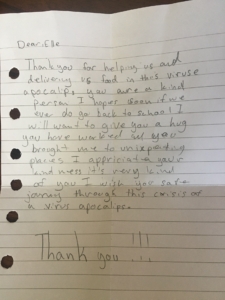 Dear
Thank you for helping us and
delivering us food in this viruse
apocalipe you are a kind
person I hope soon if we
ever do go back to school I
will want to give you a hug
you have worked
brought me to unexpecting
places I appriciate your
kindness it's very kind
of you I wish you safe
jourmy through this crisis of
a virus apocalipe.
Thank you !!!